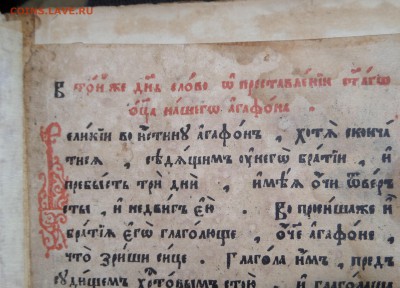 COINS.LAVE.RU
В то́йже дн҃ь сло́во ѡ҆ преставле́нїи ст҃а́гѡ
ѻ҆ц҃а̀ на́шегѡ а҆гаѳо́на .
Вели́кїи во и҆́стинꙋ а҆гаѳо́нъ , хотѧ̀ сконча́
тисѧ , сѣдѧ́щимъ ᲂу҆ негѡ̀ бра́тїи , и҆
пребы́сть трѝ дни̑ , и҆мѣ́ѧ ѻ҆́чи ѿве́р
сты , и҆ недви́гъ є҆ю̀ . Вопроша́же и҆
бра́тїѧ є҆гѡ̀ глаго́люще , ѻ҆́че а҆гаѳо́не ,
что̀ зри́ши си́це . Глаго́ла и҆̀мъ , предъ
сꙋди́щемъ хрⷭ҇то́вымъ стою̀ , и҆ глаго́лаша